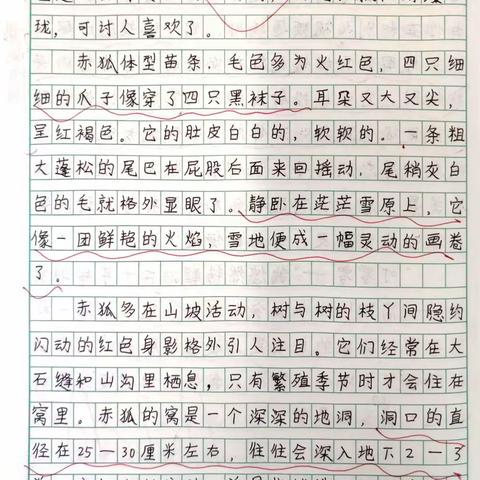 珑，可讨人喜欢了。
赤狐体型苗条，毛色多为火红色，四只细
细的爪子像穿了四只黑袜子。耳朵又大又尖，
呈红褐色。它的肚皮白白的，软软的。一条粗
大蓬松的尾巴在屁股后面来回摇动，尾稍灰白
色的毛就格外显眼了。静卧在茫茫雪原上，它
像一团鲜艳的火焰，雪地便成一幅灵动的画卷
了。
赤狐多在山坡活动，树与树的枝丫间隐约
闪动的红色身影格外引人注目。它们经常在大
石缝和山沟里栖息，只有繁殖季节时才会住在
窝里。赤狐的窝是一个深深的地洞，洞口的直
径在25—30厘米左右，往往会深入地下2—3